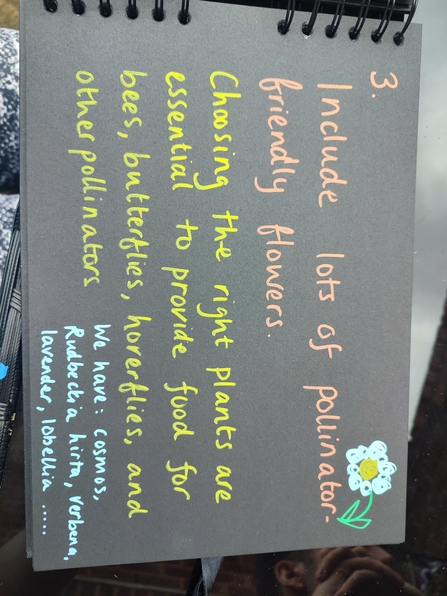 3.
Include lots of pollinator-
friendly flowers.
Choosing the right plants are
essential to provide food for
bees, butterflies, hoverflies, and
other pollinators
We have: cosmos,
Rudbeckia hirta, verbena,
lavender, lobellia .....